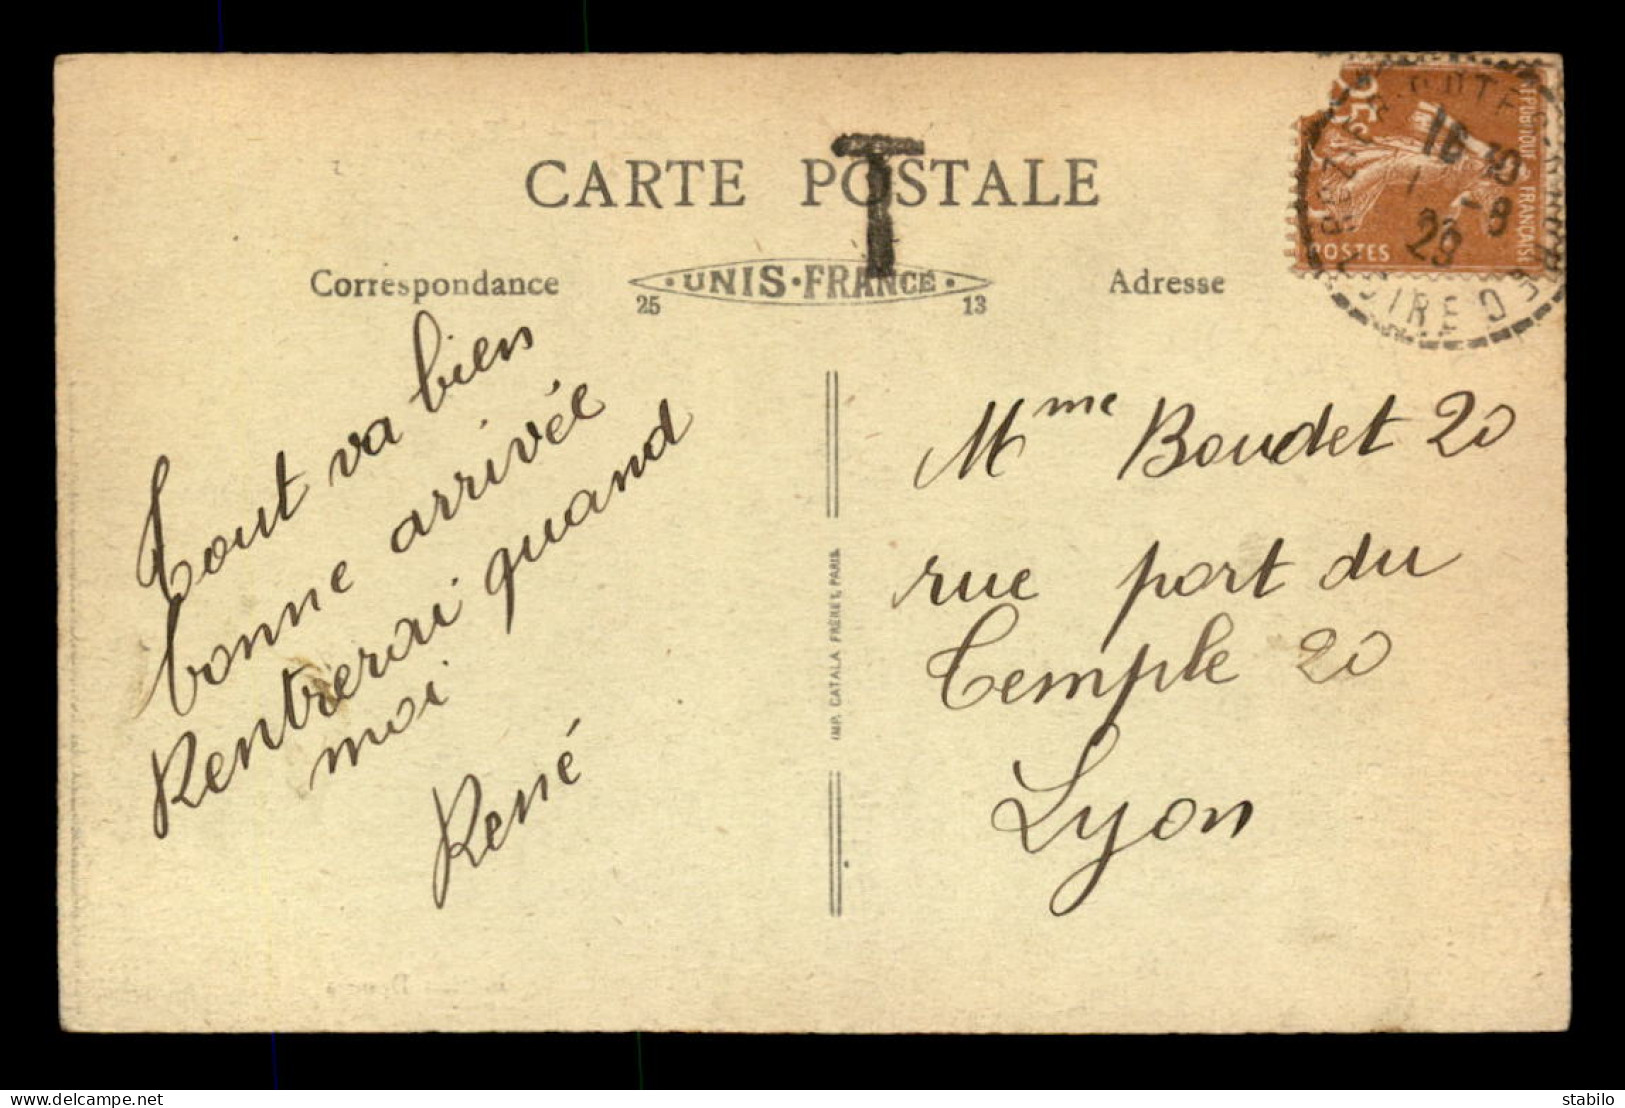 CARTE POSTALE
T
Correspondance
UNIS·FRANCE
25 13
Adresse
25c
POSTES
REPUBLIQUE FRANÇAISE
16 30
1 -8
29
Tout va bien
bonne arrivée
Rentrerai quand
moi
René
IMP. CATALA FRÈRES, PARIS
Mme Boudet 20
rue port du
Temple 20
Lyon
delcampe.net
stabilo